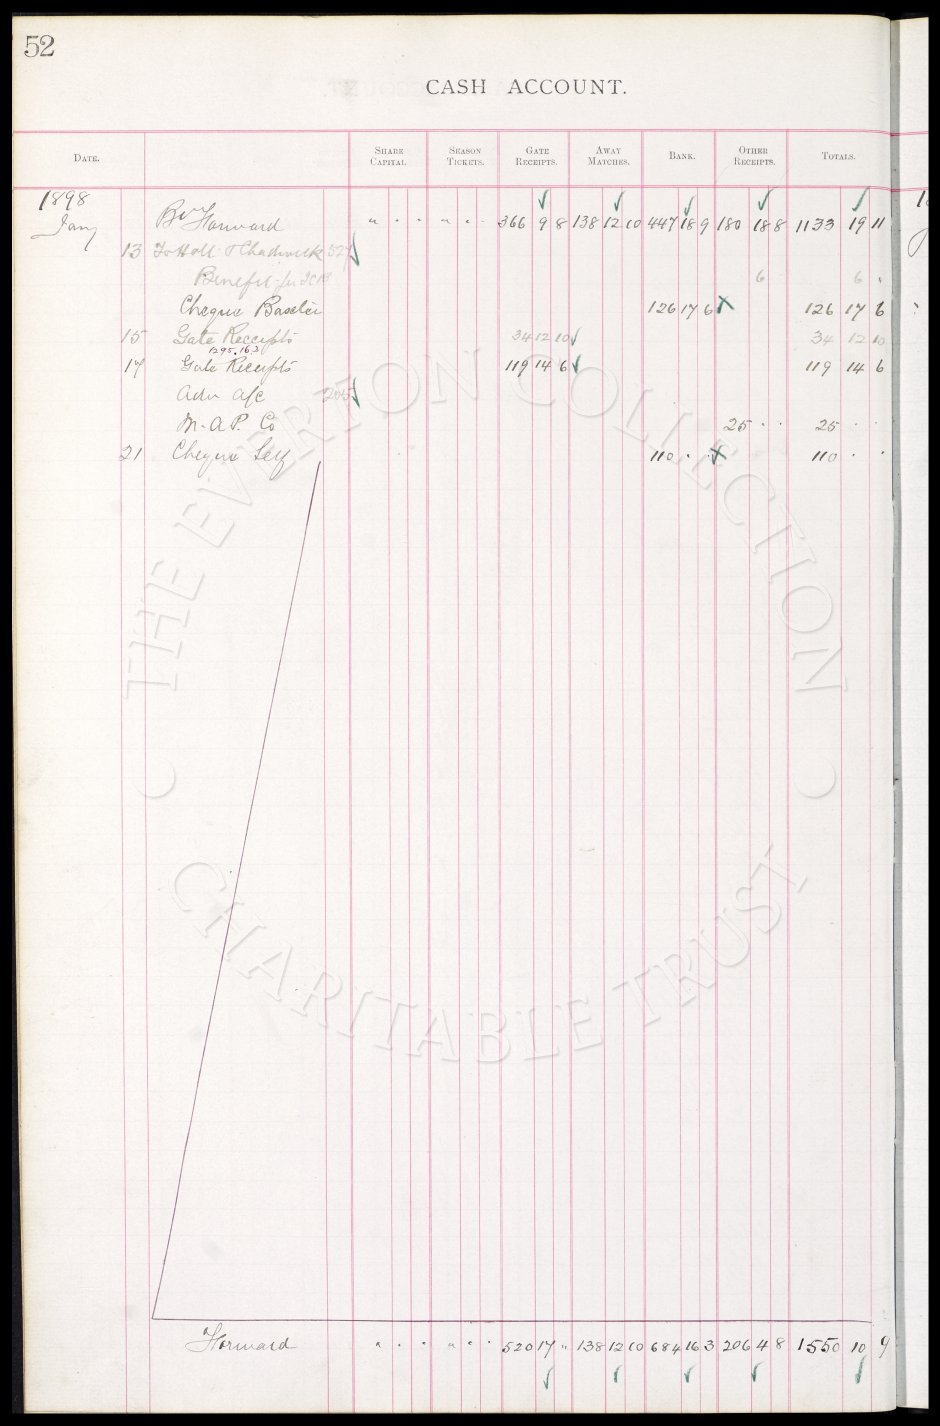 52
CASH ACCOUNT.
DATE. SHARE CAPITAL. SEASON TICKETS. GATE RECEIPTS. AWAY MATCHES. BANK. OTHER RECEIPTS. TOTALS.
1898
Jany Bt Forward " " " " " " 366 9 8 138 12 10 447 18 9 180 18 8 1133 19 11
13 Holt & Chadwick 527
Benefit 6 6 "
Cheque 126 17 6 126 17 6
15 Gate Receipts 34 12 10 34 12 10
1295.163
17 Gate Receipts 119 14 6 119 14 6
Adv a/c
M. A. P. Co 25 " " 25 " "
21 Cheque Self 110 " " 110 " "
Forward " " " " " " 520 17 " 138 12 10 684 16 3 206 4 8 1550 10 9
THE EVERTON COLLECTION
CHARITABLE TRUST